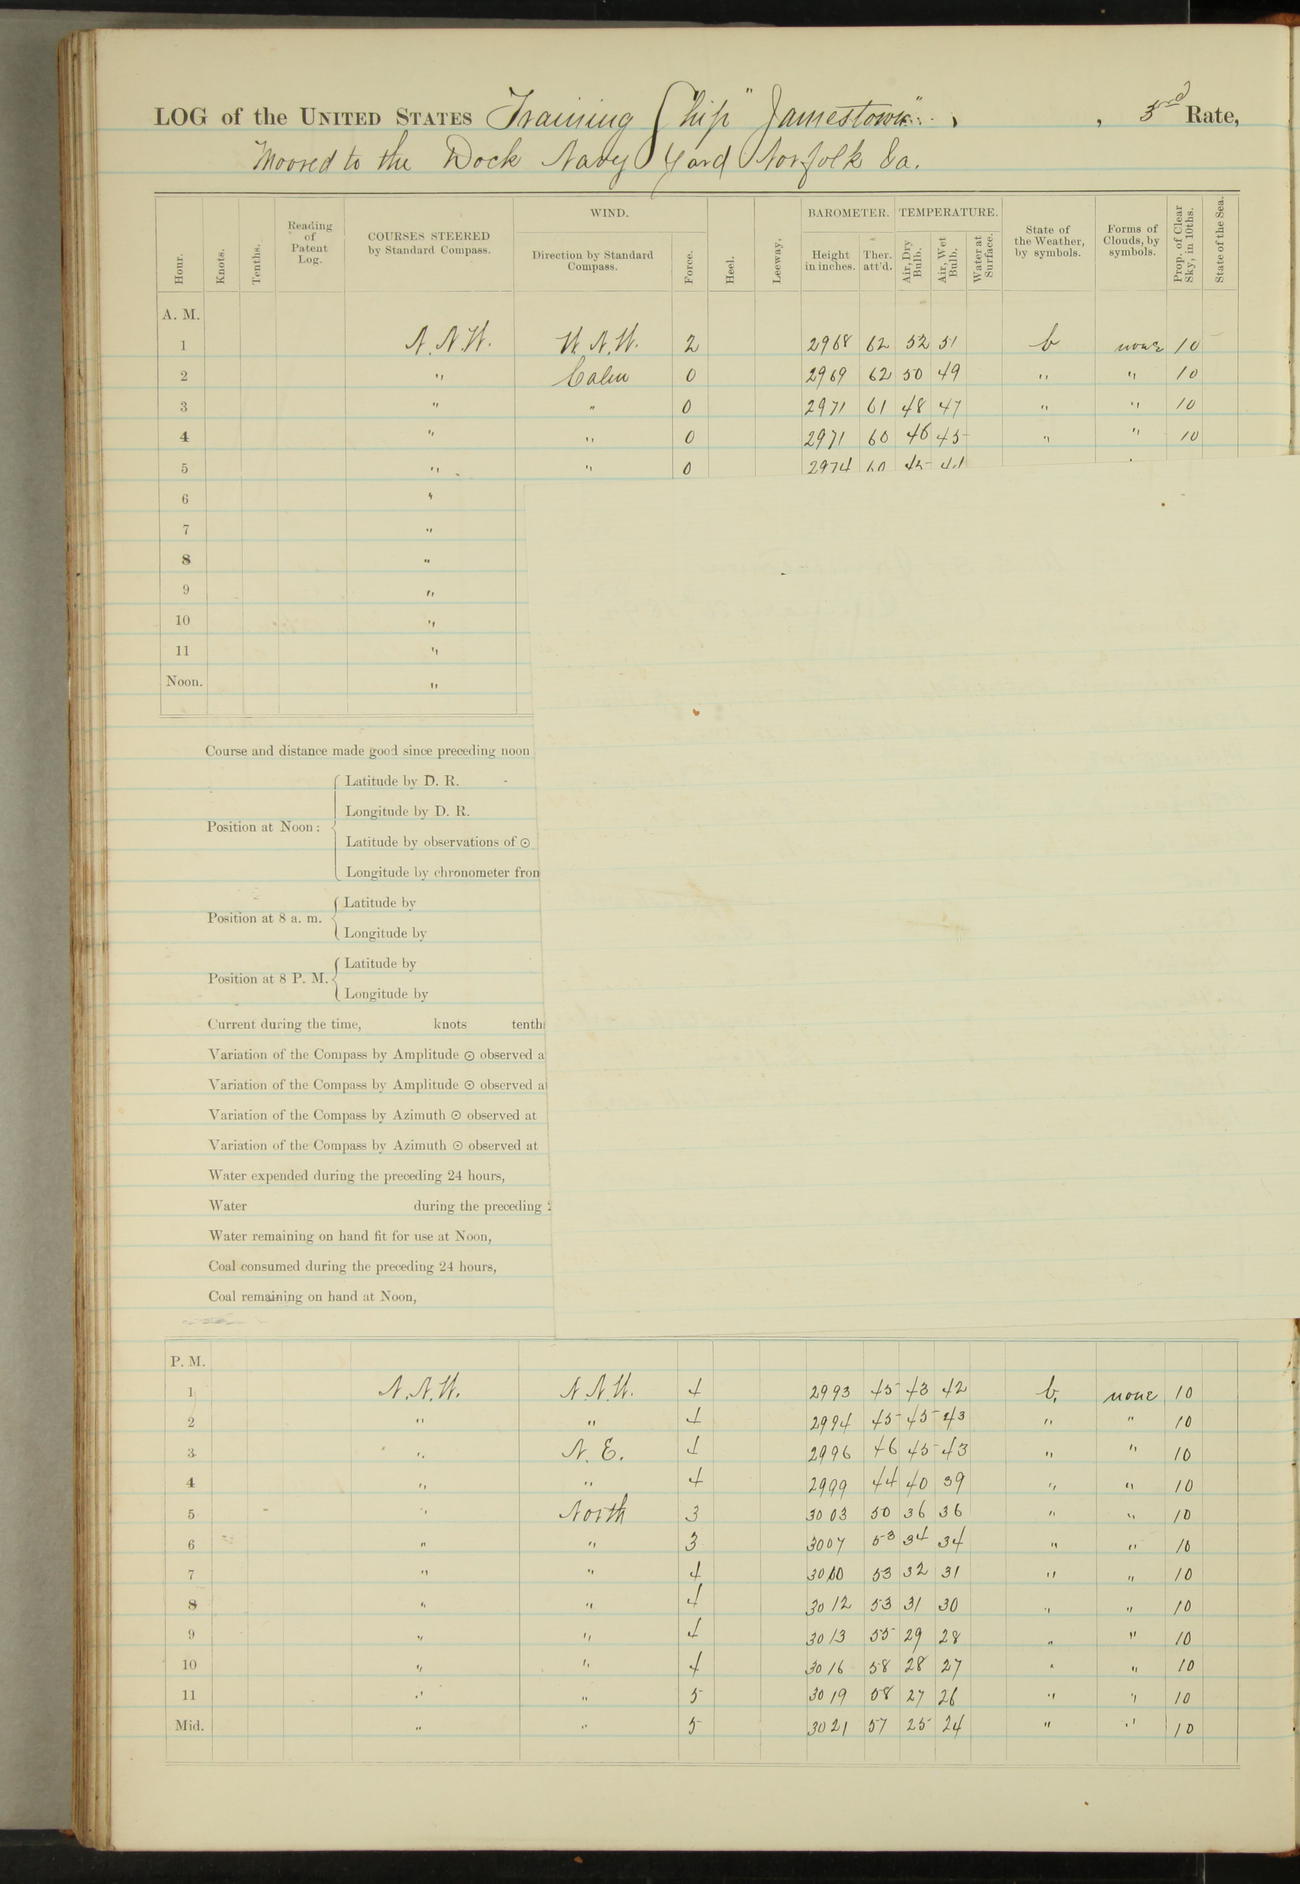 LOG of the UNITED STATES Training Ship "Jamestown", , 3rd Rate,
Moored to the Dock Navy Yard Norfolk Va.
Hour. Knots. Tenths. Reading of Patent Log. COURSES STEERED by Standard Compass. WIND. Direction by Standard Compass. Force. Heel. Leeway. BAROMETER. Height in inches. Ther. att'd. TEMPERATURE. Air, Dry Bulb. Air, Wet Bulb. Water at Surface. State of the Weather, by symbols. Forms of Clouds, by symbols. Prop. of Clear Sky, in 10ths. State of the Sea.
A. M.
1 N.N.W. W.N.W. 2 2968 62 52 51 b none 10
2 " Calm 0 2969 62 50 49 " " 10
3 " " 0 2971 61 48 47 " " 10
4 " " 0 2971 60 46 45 " " 10
5 " " 0 2974 60
6 "
7 "
8 "
9 "
10 "
11 "
Noon. "
Course and distance made good since preceding noon
Position at Noon:
Latitude by D. R.
Longitude by D. R.
Latitude by observations of ⊙
Longitude by chronometer from
Position at 8 a. m.
Latitude by
Longitude by
Position at 8 P. M.
Latitude by
Longitude by
Current during the time, knots tenth
Variation of the Compass by Amplitude ⊙ observed a
Variation of the Compass by Amplitude ⊙ observed a
Variation of the Compass by Azimuth ⊙ observed at
Variation of the Compass by Azimuth ⊙ observed at
Water expended during the preceding 24 hours,
Water during the preceding
Water remaining on hand fit for use at Noon,
Coal consumed during the preceding 24 hours,
Coal remaining on hand at Noon,
P. M.
1 N.N.W. N.N.W. 4 2993 45 43 42 b, none 10
2 " " 4 2994 45 45 43 " " 10
3 " N.E. 4 2996 46 45 43 " " 10
4 " " 4 2999 44 40 39 " " 10
5 " North 3 3003 50 36 36 " " 10
6 " " 3 3007 53 34 34 " " 10
7 " " 4 3010 53 32 31 " " 10
8 " " 4 3012 53 31 30 " " 10
9 " " 4 3013 55 29 28 " " 10
10 " " 4 3016 58 28 27 " " 10
11 " " 5 3019 58 27 26 " " 10
Mid. " " 5 3021 57 25 24 " " 10